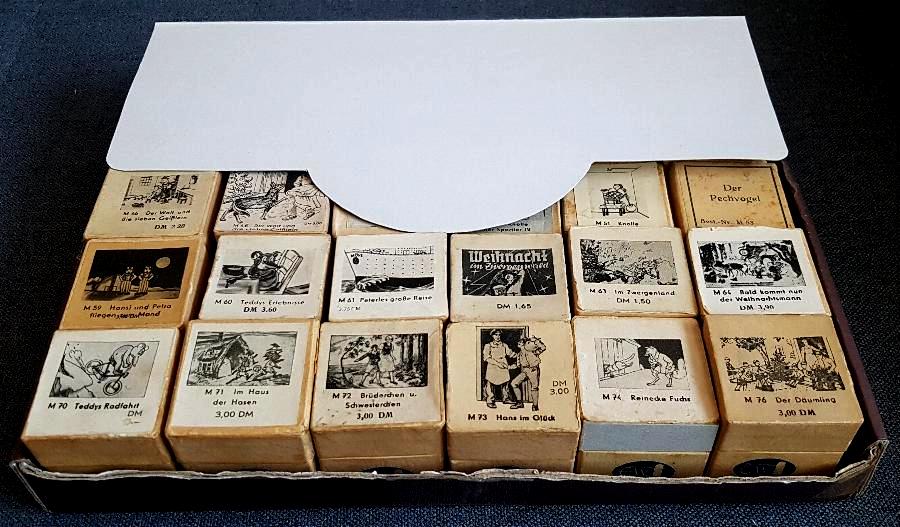 M 46 Der Wolf und
die sieben Geißlein
DM
M 51 Knolle
Der
Pechvogel
Best.-Nr. M 65
M 59 Hansl und Petra
fliegen zum Mond
M 60 Teddys Erlebnisse
DM 3.60
M 61 Peterles große Reise
Weihnacht
im Zwergenwald
DM 1,65
M 63 Im Zwergenland
DM 1,50
Bald kommt nun
der Weihnachtsmann
DM 3,90
M 70 Teddys Radfahrt
DM
M 71 Im Haus
der Hasen
3,00 DM
M 72 Brüderchen u.
Schwesterchen
3,00 DM
M 73 Hans im Glück
DM
3.00
M 74 Reinecke Fuchs
M 76 Der Däumling
3,00 DM